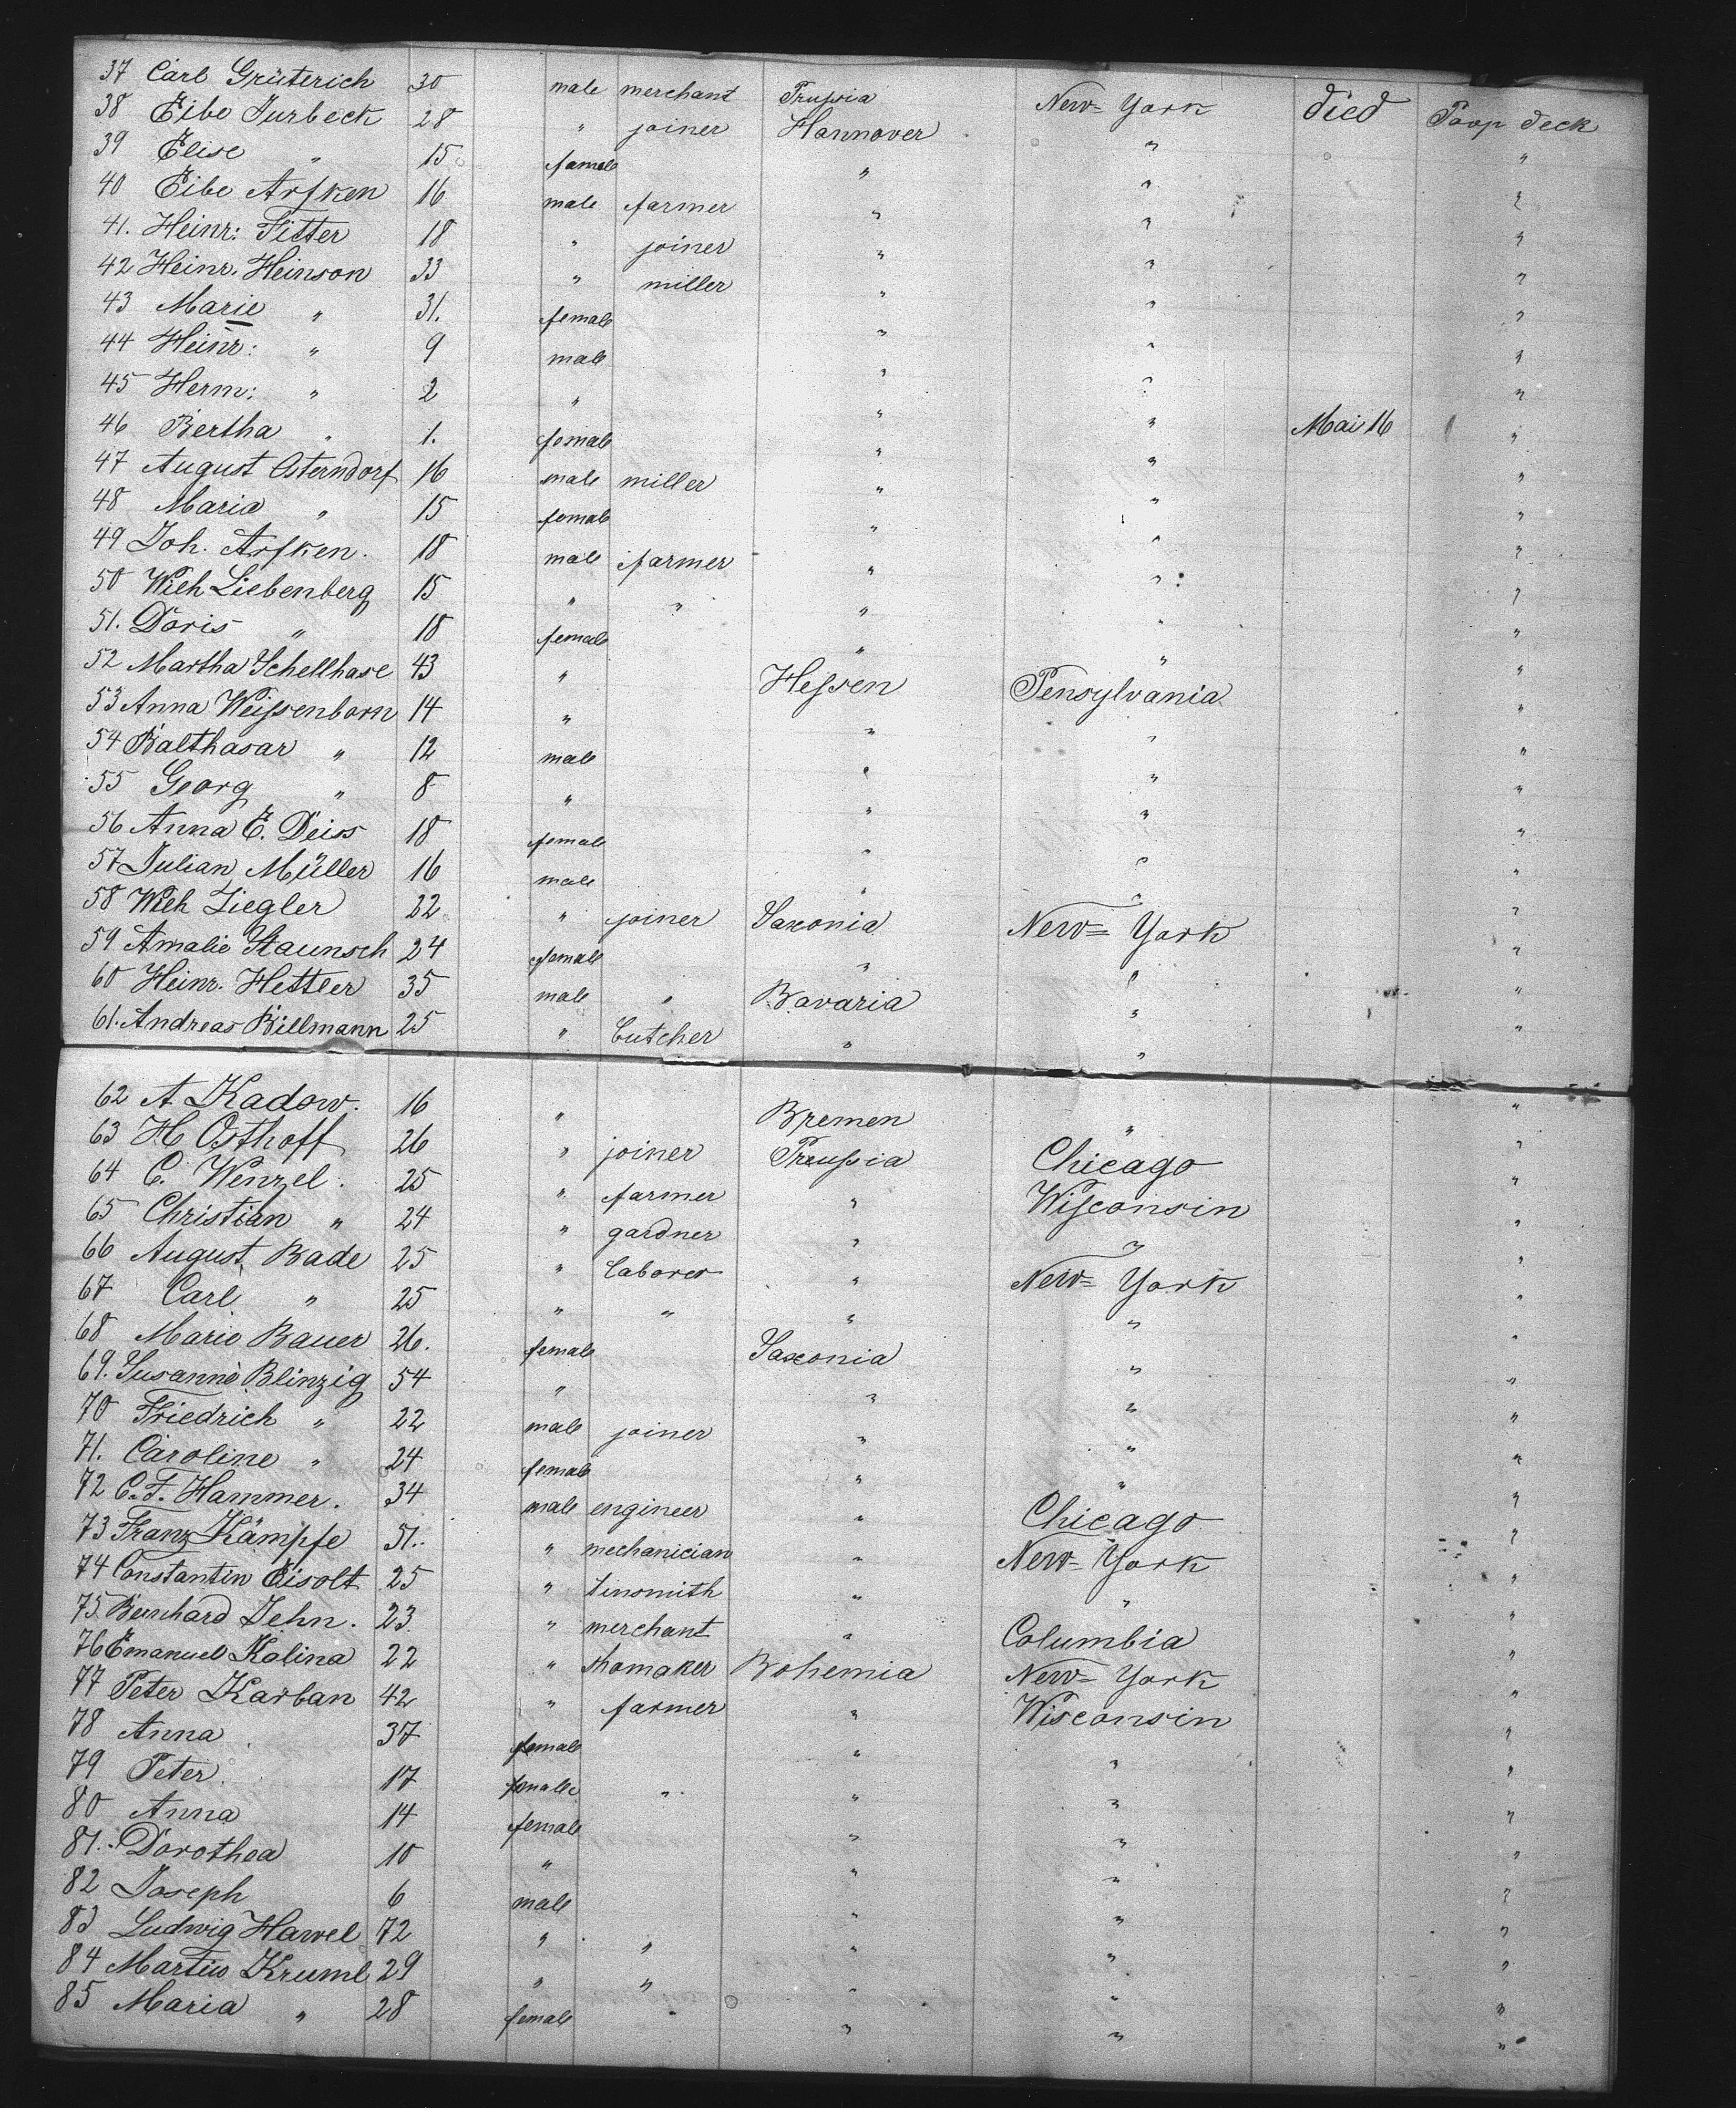 37 Carl Grüterich 30 male merchant Prussia New-York died Poop deck
38 Eibe Jurbeck 28 " joiner Hannover " "
39 Elise " 15 female " " "
40 Eibe Arfken 16 male farmer " " "
41. Heinr: Titter 18 " joiner " " "
42 Heinr. Heinson 33 " miller " " "
43 Marie " 31. female " " "
44 Heinr: " 9 male " " "
45 Herm: " 2 " " " "
46 Bertha " 1. female " " Mai 16 "
47 August Osterndorf 16 male miller " " "
48 Maria " 15 female " " "
49 Joh. Arfken. 18 male farmer " " "
50 Wilh Liebenberg 15 " " " " "
51. Doris " 18 female " " "
52 Martha Schellhase 43 " Hessen Pensylvania "
53 Anna Weissenborn 14 " " " "
54 Balthasar " 12 male " " "
55 Georg " 8 " " " "
56 Anna E. Deiss 18 female " " "
57 Julian Müller 16 male " " "
58 Wilh Ziegler 22 " joiner Saxonia New-York "
59 Amalie Staunsch 24 female " " "
60 Heinr. Hetteer 35 male " Bavaria " "
61. Andreas Billmann 25 " butcher " " "
62 A Kadow. 16 " Bremen " "
63 H Osthoff 26 " joiner Preussia Chicago "
64 C. Wenzel. 25 " farmer " Wisconsin "
65 Christian " 24 " gardner " " "
66 August Bade 25 " laborer " New-York "
67 Carl " 25 " " " " "
68 Marie Bauer 26. female Saxonia " "
69. Susanne Blinzig 54 " " " "
70 Friedrich " 22 male joiner " " "
71. Caroline " 24 female " " "
72 C. F. Hammer. 34 male engineer " Chicago "
73 Franz Kämpfe 51. " mechanician " New-York "
74 Constantin Eisolt 25 " tinsmith " " "
75. Bernhard Jehn. 23. " merchant " Columbia "
76 Emanuel Kalina 22 " shomaker Bohemia New-York "
77 Peter Karban 42 " farmer " Wisconsin "
78 Anna 37 female " " "
79 Peter 17 female " " " "
80 Anna 14 female " " "
81. Dorothea 10 " " " "
82 Joseph 6 male " " "
83 Ludwig Hawel 72 " " " " "
84 Martin Kruml 29 " " " " "
85 Maria " 28 female " " "